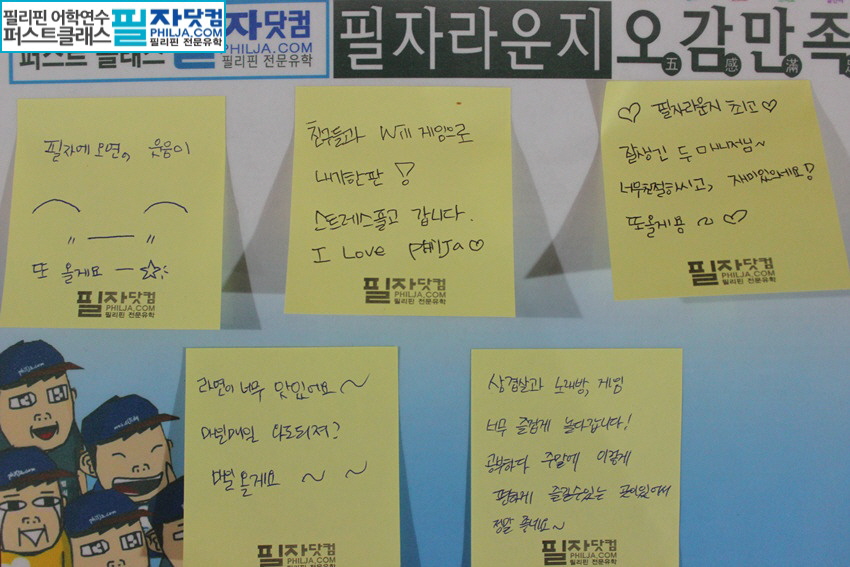 필리핀 어학연수
퍼스트클래스
필자닷컴
PHILJA.COM
필리핀 전문유학
퍼스트 클래스
필자닷컴
PHILJA.COM
필리핀 전문유학
필자라운지
오감만족
五感滿足
필자에 오면, 웃음이
또 올게요 ㅡ☆
필자닷컴
PHILJA.COM
필리핀 전문유학
친구들과 Wii 게임으로
내기한판!
스트레스풀고 갑니다.
I Love PHILJa♡
필자닷컴
PHILJA.COM
필리핀 전문유학
♡ 필자라운지 최고♡
잘생긴 두 매니저님~
너무친절하시고, 재미있었어요!
또올게용 ~ ♡
필자닷컴
PHILJA.COM
필리핀 전문유학
라면이 너무 맛있어요~
매일매일 와도되져?
매일 올게요 ~ ~
필자닷컴
PHILJA.COM
필리핀 전문유학
삼겹살과 노래방, 게임
너무 즐겁게 놀다갑니다!
공부하다 주말에 이렇게
편하게 즐길수있는 곳이있어서
정말 좋네요~
필자닷컴
PHILJA.COM
필리핀 전문유학
philja.com
philja.com
philja.com
philja.com